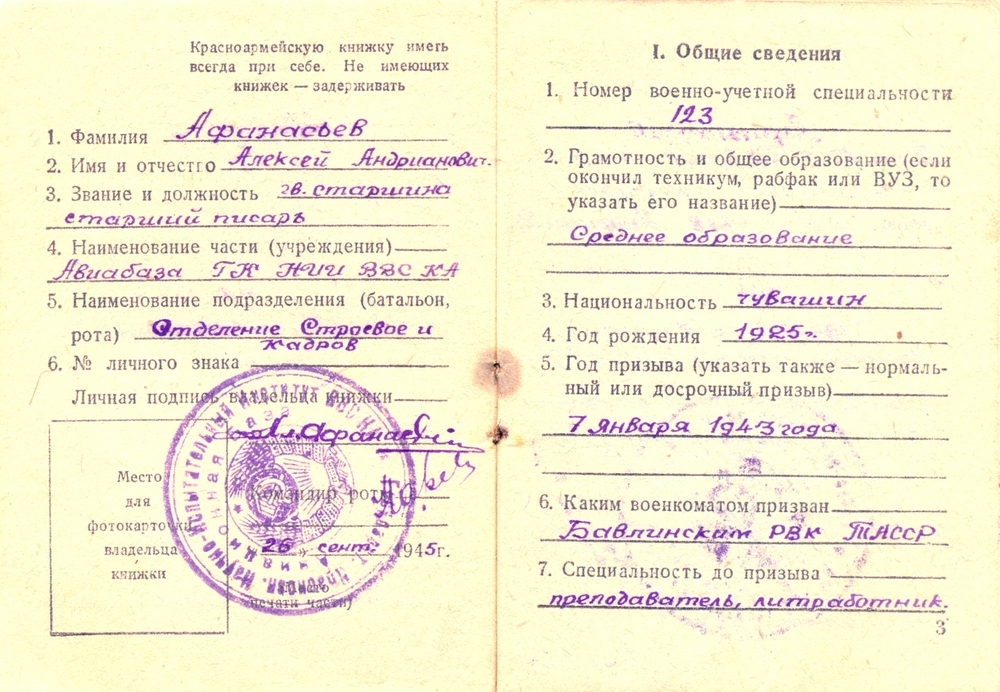 Красноармейскую книжку иметь
всегда при себе. Не имеющих
книжек — задерживать
1. Фамилия Афанасьев
2. Имя и отчество Алексей Андрианович.
3. Звание и должность гв. старшина
старший писарь
4. Наименование части (учреждения)
Авиабаза ГК НИИ ВВС КА
5. Наименование подразделения (батальон,
рота) Отделение Строевое и
кадров
6. № личного знака
Личная подпись владельца книжки
Афанасьев
Место
для
фотокарточки
владельца
книжки
Командир роты
26 » сент. 1945г.
печати части)
I. Общие сведения
1. Номер военно-учетной специальности
123
2. Грамотность и общее образование (если
окончил техникум, рабфак или ВУЗ, то
указать его название)
Среднее образование
3. Национальность чувашин
4. Год рождения 1925г.
5. Год призыва (указать также — нормаль-
ный или досрочный призыв)
7 января 1943 года
6. Каким военкоматом призван
Бавлинским РВК ТАССР
7. Специальность до призыва
преподаватель, литработник.
3